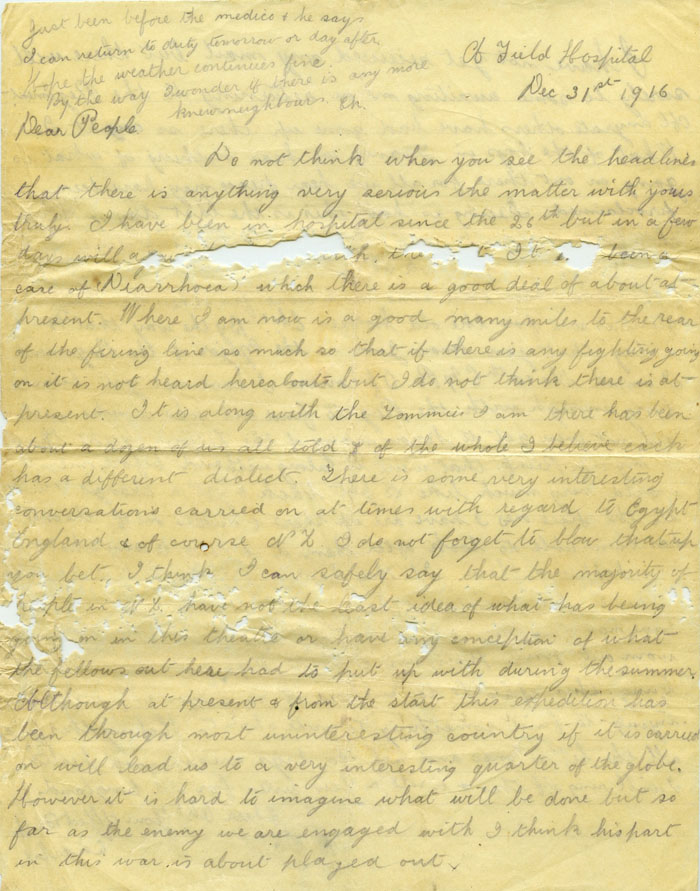 Just been before the medico & he says
I can return to duty tomorrow or day after.
Hope the weather continues fine.
By the way I wonder if there is any more
knewneighbours. Eh.
Field Hospital
Dec 31st 1916
Dear People
Do not think when you see the headlines
that there is anything very serious the matter with yours
truly. I have been in hospital since the 26th but in a few
days will a
It being a
case of Diarrhoea which there is a good deal of about at
present. Where I am now is a good many miles to the rear
of the firing line so much so that if there is any fighting going
on it is not heard hereabouts but I do not think there is at
present. It is along with the Tommies I am there has been
about a dozen of us all told & of the whole I believe each
has a different dialect. There is some very interesting
conversations carried on at times with regard to Egypt
England & of course N Z. I do not forget to blow that up
you bet. I think I can safely say that the majority of
people in N.Z. have not the least idea of what has being
going on in this theatre or have any conception of what
the fellows out here had to put up with during the summer.
Although at present & from the start this expedition has
been through most uninteresting country if it is carried
on will lead us to a very interesting quarter of the globe.
However it is hard to imagine what will be done but so
far as the enemy we are engaged with I think his part
in this war is about played out.